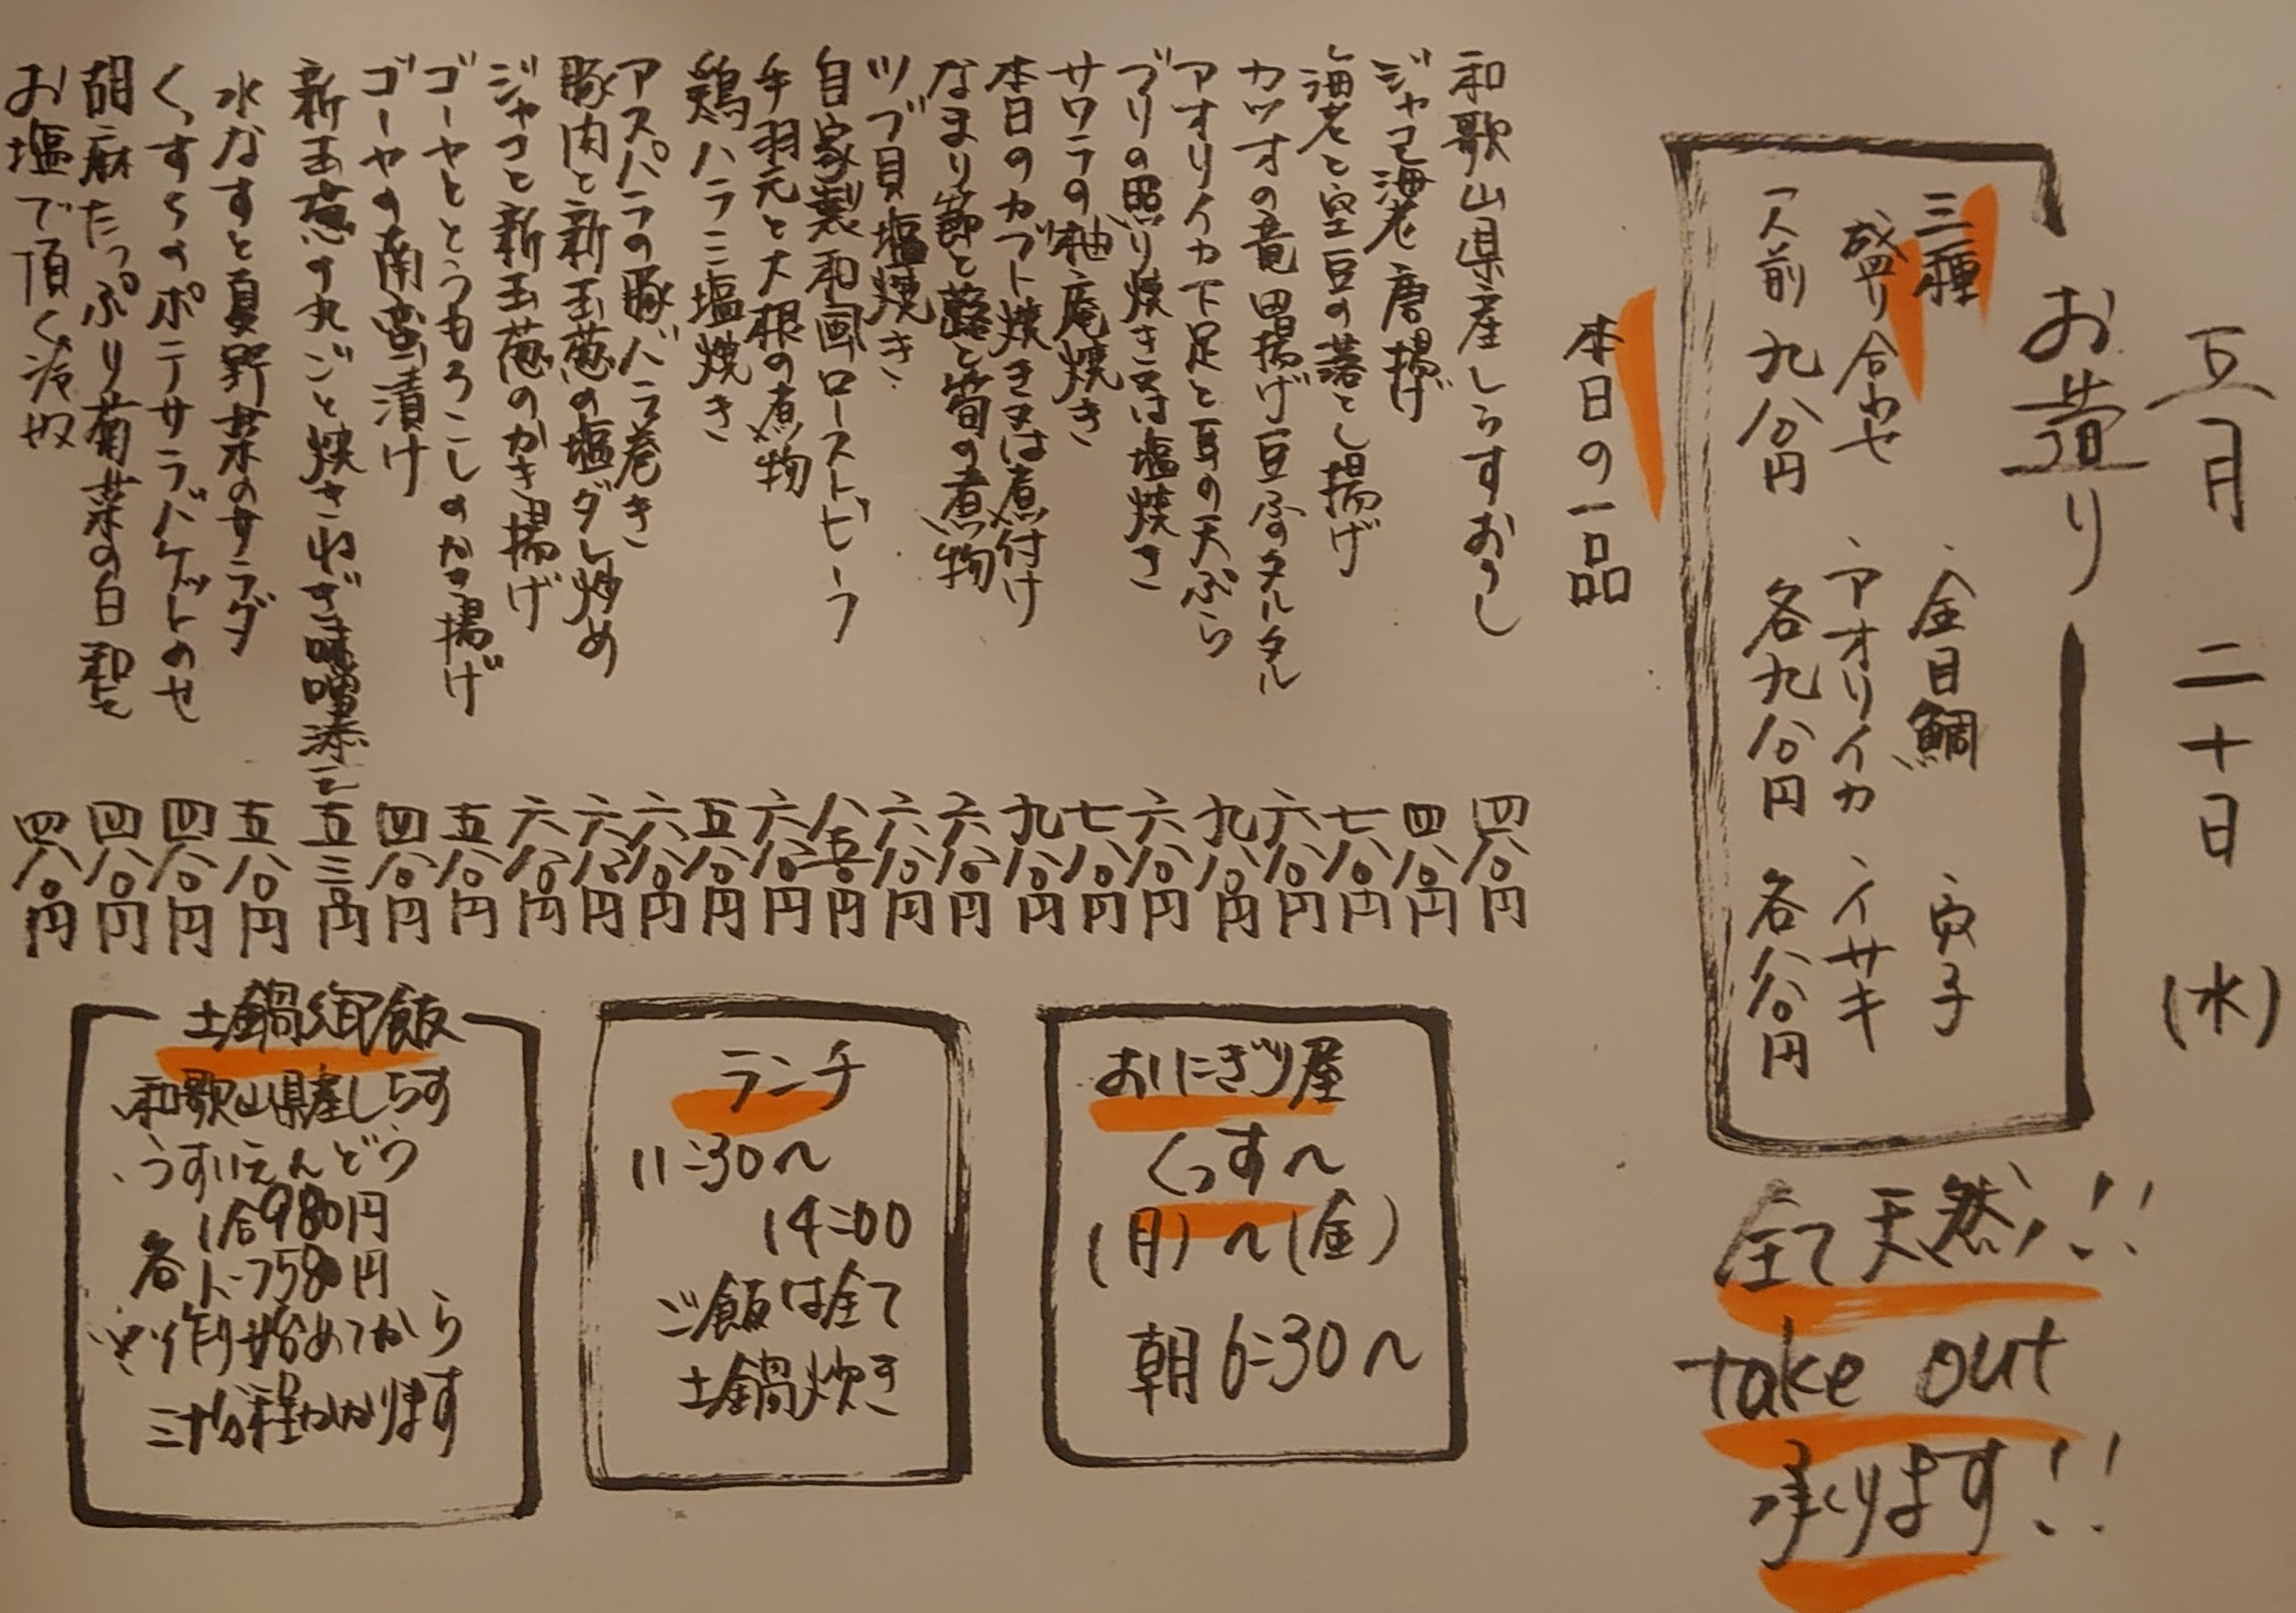 五月二十日(水)
お造り
三種
盛り合わせ
一人前 九八〇円
・金目鯛
・アオリイカ
各九八〇円
・穴子
・イサキ
各八八〇円
全て天然!!
take out
承ります!!
本日の一品
和歌山県産しらすおろし 四八〇円
ジャコ海老唐揚げ 四八〇円
海老と空豆の落とし揚げ 七八〇円
カツオの竜田揚げ豆ふのタルタル 六八〇円
アオリイカ下足と耳の天ぷら 九八〇円
ブリの照り焼き又は塩焼き 六八〇円
サワラの柚庵焼き 七八〇円
本日のカブト焼き又は煮付け 九八〇円
なまり節と蕗と筍の煮物 六八〇円
ツブ貝塩焼き 六八〇円
自家製和風ローストビーフ 八五〇円
手羽元と大根の煮物 六八〇円
鶏ハラミ塩焼き 五八〇円
アスパラの豚バラ巻き 六八〇円
豚肉と新玉葱の塩ダレ炒め 六八〇円
ジャコと新玉葱のかき揚げ 六八〇円
ゴーヤととうもろこしのかき揚げ 五八〇円
ゴーヤの南蛮漬け 四八〇円
新玉葱の丸ごと焼きねぎ味噌添え 五三〇円
水なすと夏野菜のサラダ 五八〇円
くっすらのポテサラバケットのせ 四八〇円
胡麻たっぷり菊菜の白和え 四八〇円
お塩で頂く冷奴 四八〇円
おにぎり屋
くっす〜
(月)〜(金)
朝6:30〜
ランチ
11:30〜
14:00
ご飯は全て
土鍋炊き
土鍋御飯
・和歌山県産しらす
・うすいえんどう
各
1合980円
ハーフ580円
※作り始めてから
三十分程かかります